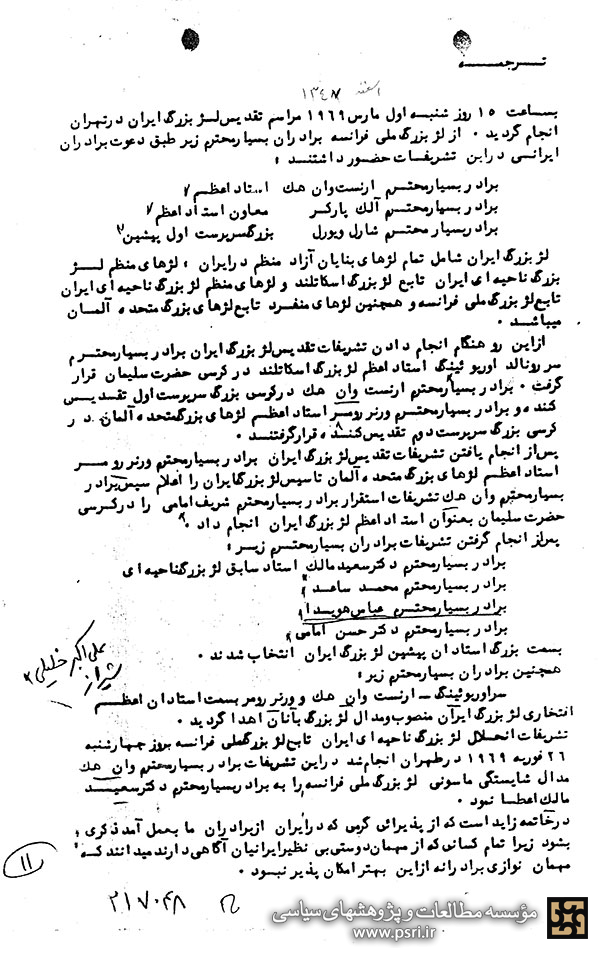 تـــرجمـــــه
اسفند ١٣٤٧
بساعت ١٥ روز شنبه اول مارس ١٩٦٩ مراسم تقدیس لژ بزرگ ایران درتهران
انجام گردید ۰ از لژ بزرگ ملی فرانسه برادران بسیارمحترم زیر طبق دعوت برادران
ایرانسی دراین تشریفات حضور داشتند :
برادر بسیارمحترم ارنست وان هك استاد اعظم
برادر بسیارمحترم آلك پارکر معاون استاد اعظم
برادر بسیار محترم شارل ویورل بزرگ سرپرست اول پیشین
لژ بزرگ ایران شامل تمام لژهای بنایان آزاد منظم درایران ، لژهای منظم لــژ
بزرگ ناحیه ای ایران تابع لژ بزرگ اسکاتلند و لژهای منظم لژ بزرگ ناحیه ای ایران
تابع لژ بزرگ ملی فرانسه و همچنین لژهای منفرد تابع لژهای بزرگ متحده آلمــان
میباشد ۰
ازاین رو هنگام انجام دادن تشریفات تقدیس لژ بزرگ ایران برادر بسیارمحتــرم
سر رونالد اوریوئینگ استاد اعظم لژ بزرگ اسکاتلند درکرسی حضرت سلیمان قرار
گرفت ۰ برادر بسیارمحترم ارنست وان هك درکرسی بزرگ سرپرست اول تقدیــس
کننده و برادر بسیارمحترم ورنر رومــر استاد اعظم لژهای بزرگ متحده آلمان در
کرسی بزرگ سرپرست دوم تقدیس کننده قرارگرفتنــد ۰
پس از انجام یافتن تشریفات تقدیس لژ بزرگ ایران برادر بسیارمحترم ورنر رومــر
استاد اعظم لژهای بزرگ متحده آلمان تاسیس لژ بزرگ ایران را اعلام سپس برادر
بسیارمحترم وان هك تشریفات استقرار برادر بسیارمحترم شریف امامی را درکــرسی
حضرت سلیمان بعنوان استاد اعظم لژ بزرگ ایران انجام داد ۰
پس از انجام گرفتن تشریفات برادران بسیارمحتــرم زیــر :
برادر بسیارمحترم دکترسعید مالك استاد سابق لژ بزرگ ناحیه ای
برادر بسیارمحترم محمد ساعد
برادر بسیارمحتــرم عباس هویــدا
برادر بسیارمحترم دکتر حسن امامی
بسمت بزرگ استادان پیشین لژ بزرگ ایران انتخاب شدند ۰
علی اکبر خلیلی
شیراز
همچنین برادران بسیارمحترم زیر :
سراوریوئینگ ــ ارنست وان هك و ورنر رومر بسمت استادان اعظــم
افتخاری لژ بزرگ ایران منصوب و مدال لژ بزرگ بآنان اهدا گردید ۰
تشریفات انحلال لژ بزرگ ناحیه ای ایران تابع لژ بزرگ ملی فرانسه بروز چهارشنبه
٢٦ فوریه ١٩٦٩ درطهران انجام شد دراین تشریفات برادر بسیارمحترم وان هك
مدال شایستگی ماسونی لژ بزرگ ملی فرانسه را به برادر بسیارمحترم دکترسعیــد
مالك اعطا نمود ۰
درخاتمه زاید است که از پذیرائی گرمی که درایران ازبرادران ما بعمل آمد ذکری
بشود زیرا تمام کسانی که از مهمان دوستی بی نظیر ایرانیان آگاهی دارند میدانند کــه
مهمان نوازی برادرانه ازاین بهتر امکان پذیر نبود ۰
١١
٢١٧٠٤٨
مؤسسه مطالعات و پژوهشهای سیاسی
www.psri.ir